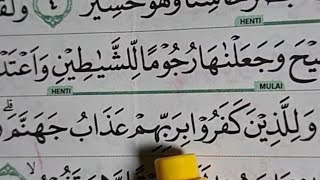 خَاسِئًا وَّهُوَ حَسِيْرٌ ٤ وَلَقَ
HENTI
يْحَ وَجَعَلْنٰهَا رُجُوْمًا لِّلشَّيٰطِيْنِ وَاَعْتَدْ
HENTI MULAI
وَلِلَّذِيْنَ كَفَرُوْا بِرَبِّهِمْ عَذَابُ جَهَنَّمَۗ